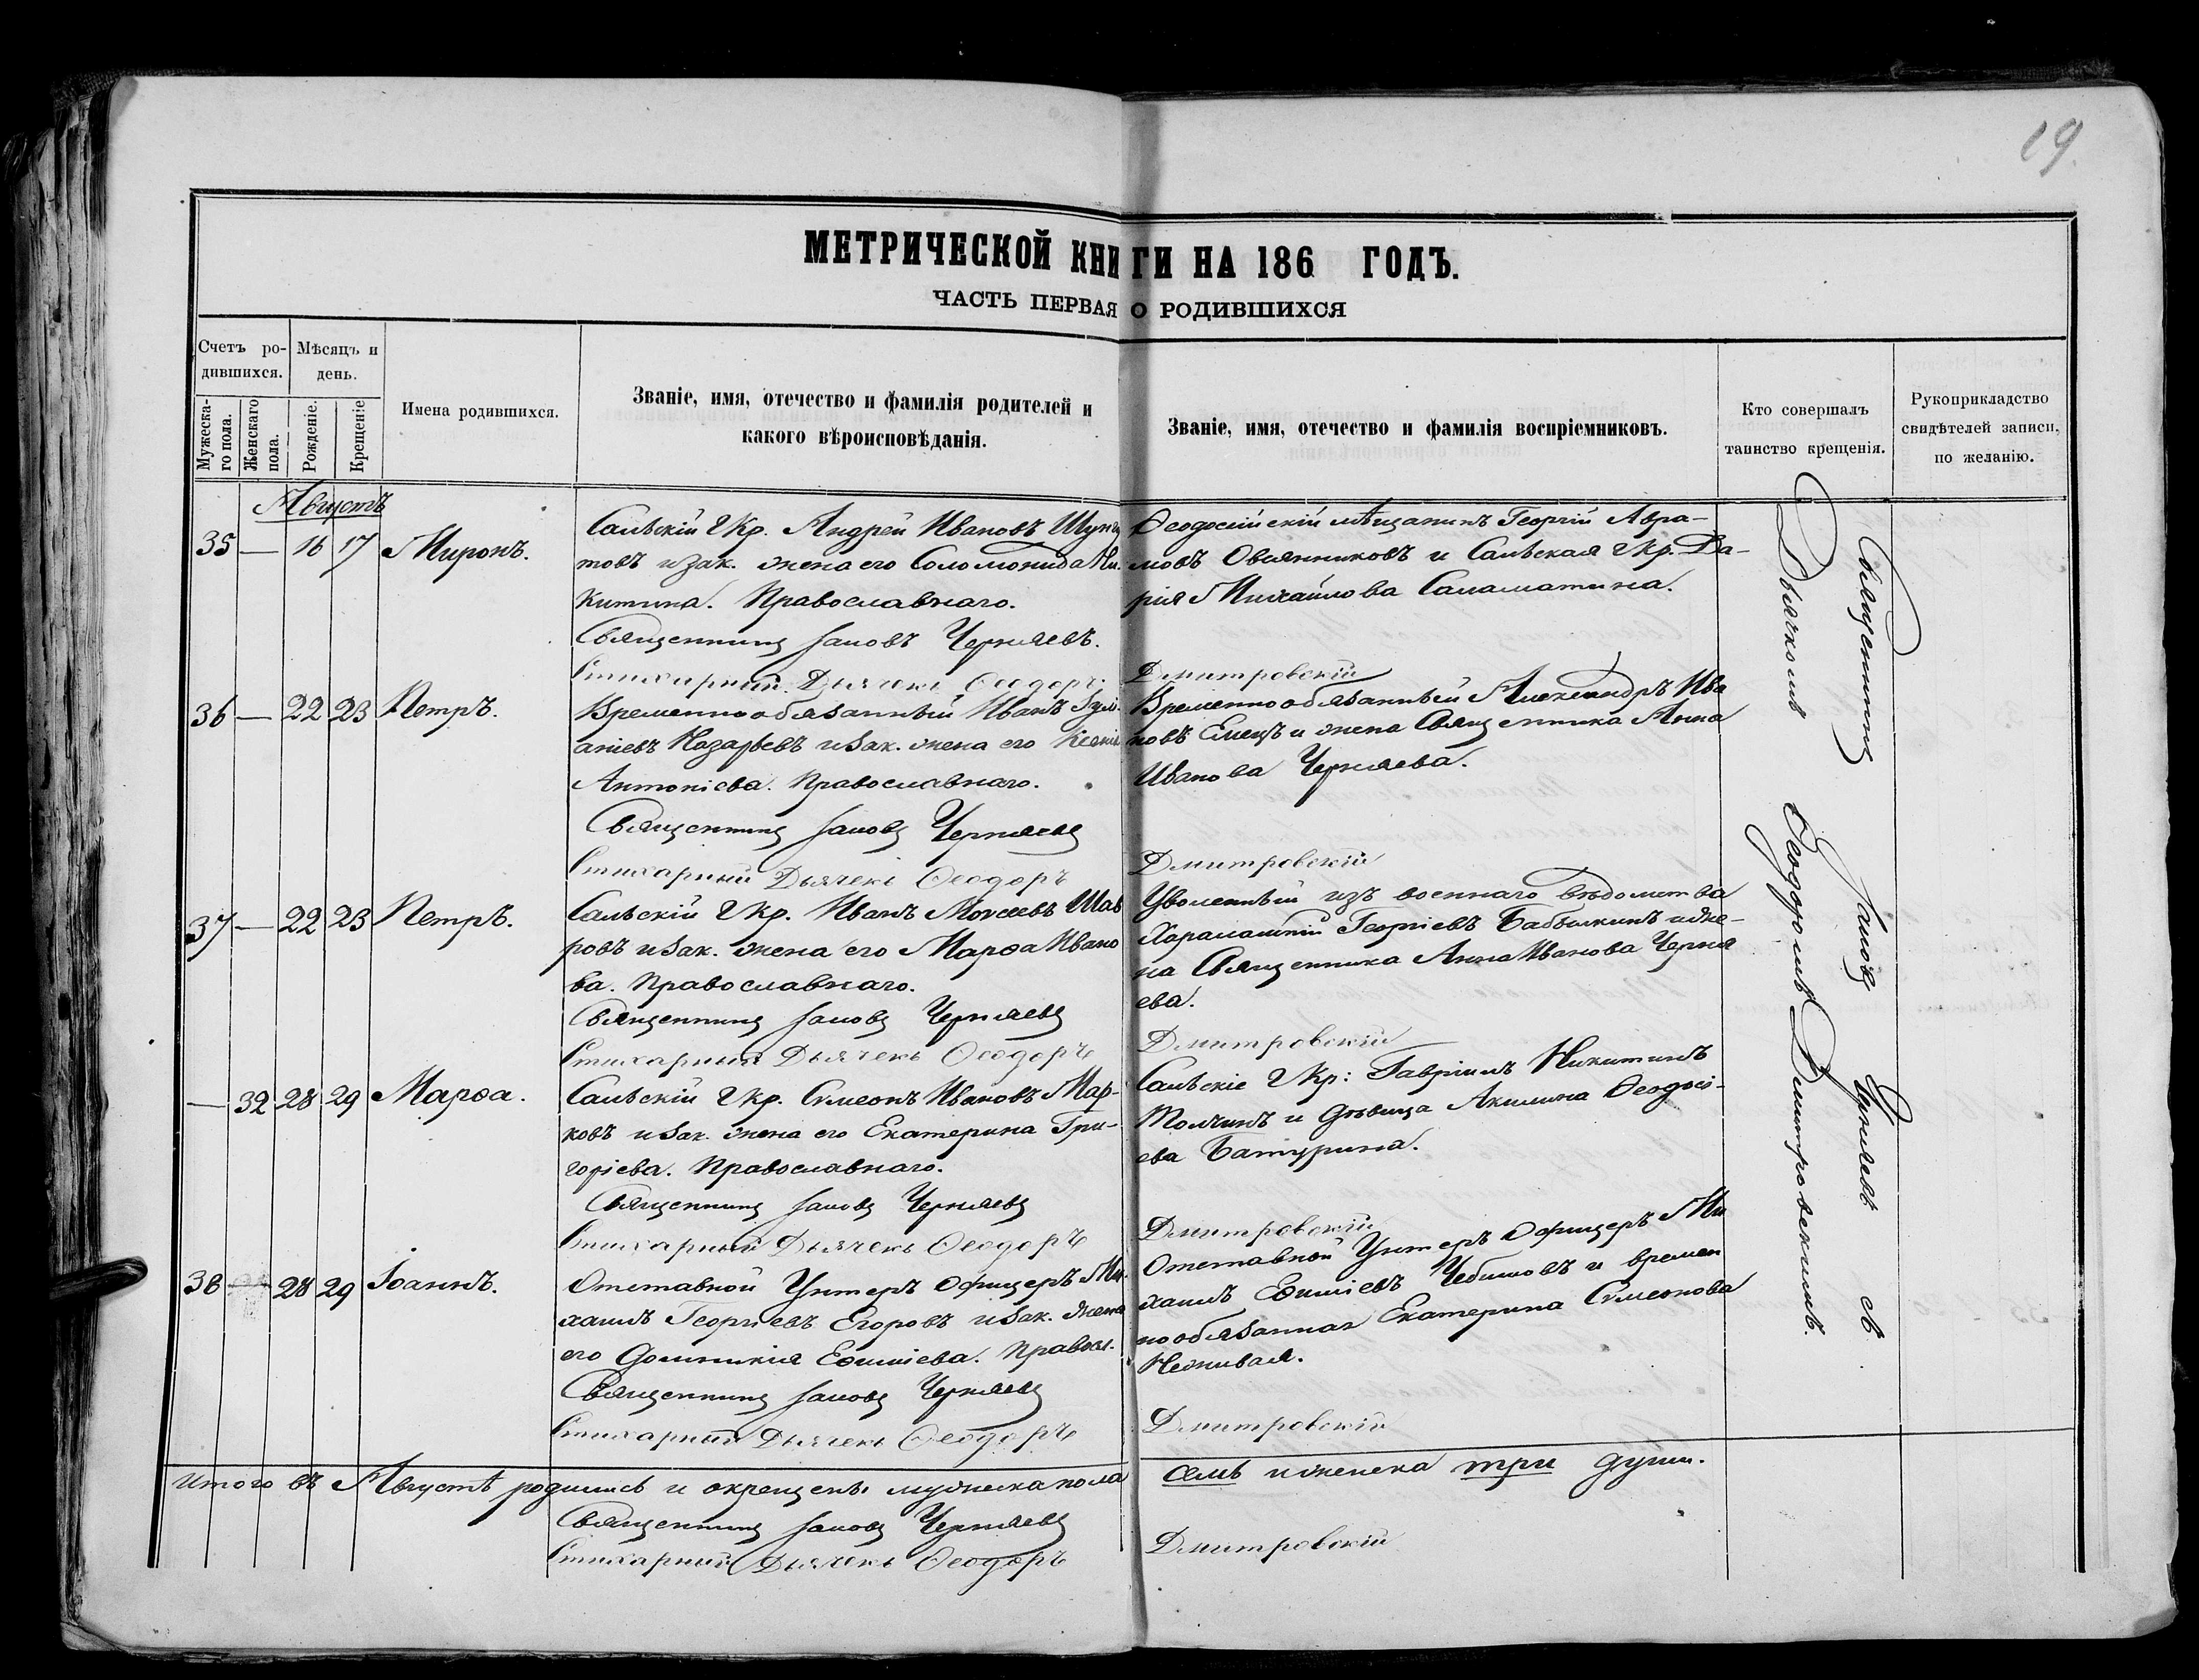 19
МЕТРИЧЕСКОЙ КНИГИ НА 186 ГОДЪ.
ЧАСТЬ ПЕРВАЯ О РОДИВШИХСЯ
Счетъ ро-
дившихся.
Мѣсяцъ и
день.
Мужеска-
го пола.
Женскаго
пола.
Рожденіе.
Крещеніе
Имена родившихся.
Званіе, имя, отечество и фамилія родителей и
какого вѣроисповѣданія.
Званіе, имя, отечество и фамилія воспріемниковъ.
Кто совершалъ
таинство крещенія.
Рукоприкладство
свидѣтелей записи,
по желанію.
Августъ
35 — 16 17 Миронъ.
Сальскій Гкр. Андрей Ивановъ
товъ и зак. жена его Соломонида Ни-
китина. Православнаго.
Священникъ Іаковъ Черняевъ.
Стихарный Дьячекъ Ѳеодоръ
Ѳеодосійскій мѣщанинъ Георгій Авра-
мовъ Овсянниковъ и Сальская Гкр. Да-
рія Михайлова Саламатина.
Дмитровскій
36 — 22 23 Петръ.
Временнообязанный Иванъ
аніевъ Назарьевъ и зак. жена его Ксенія
Антоніева. Православнаго.
Священникъ Іаковъ Черняевъ
Стихарный Дьячекъ Ѳеодоръ
Временнообязанный Александръ Ива
новъ Емецъ и жена Священника Анна
Иванова Черняева.
Дмитровскій
37 — 22 23 Петръ.
Сальскій Гкр. Иванъ Моисеевъ Шав
ровъ и зак. жена его Марѳа Ивано
ва. Православнаго.
Священникъ Іаковъ Черняевъ
Стихарный Дьячекъ Ѳеодоръ
Уволенный изъ военнаго вѣдомства
Харалампій Георгіевъ Бабылкинъ и же-
на Священника Анна Иванова Черня
ева.
Дмитровскій
— 32 28 29 Марѳа.
Сальскій Гкр. Сѵмеонъ Ивановъ Мар-
ковъ и зак. жена его Екатерина Гри-
горіева. Православнаго.
Священникъ Іаковъ Черняевъ
Стихарный Дьячекъ Ѳеодоръ
Сальскіе Гкр: Гавріилъ Никитинъ
Толчинъ и дѣвица Акилина Ѳеодосі-
ева Батурина.
Дмитровскій
38 — 28 29 Іоаннъ.
Отставной Унтеръ Офицеръ Ми-
хаилъ Георгіевъ Егоровъ и зак. жена
его Домникія Еѳиміева. Правосл.
Священникъ Іаковъ Черняевъ
Стихарный Дьячекъ Ѳеодоръ
Отставной Унтеръ Офицеръ Ми
хаилъ Еѳиміевъ и времен
нообязанная Екатерина Сѵмеонова
Неживая.
Дмитровскій
Священникъ Іаковъ Черняевъ съ
Дьячкомъ Ѳеодоромъ Дмитровскимъ.
Итого въ Августѣ родились и окрещены мужеска пола семь и женска три души.
Священникъ Іаковъ Черняевъ
Стихарный Дьячекъ Ѳеодоръ Дмитровскій